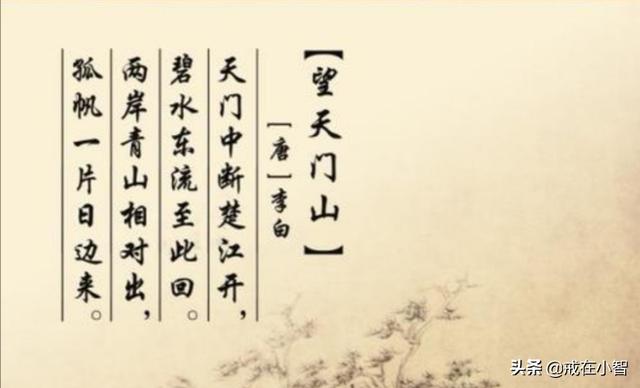 【望天门山】
[唐]李白
天门中断楚江开，
碧水东流至此回。
两岸青山相对出，
孤帆一片日边来。
头条 @戒在小智